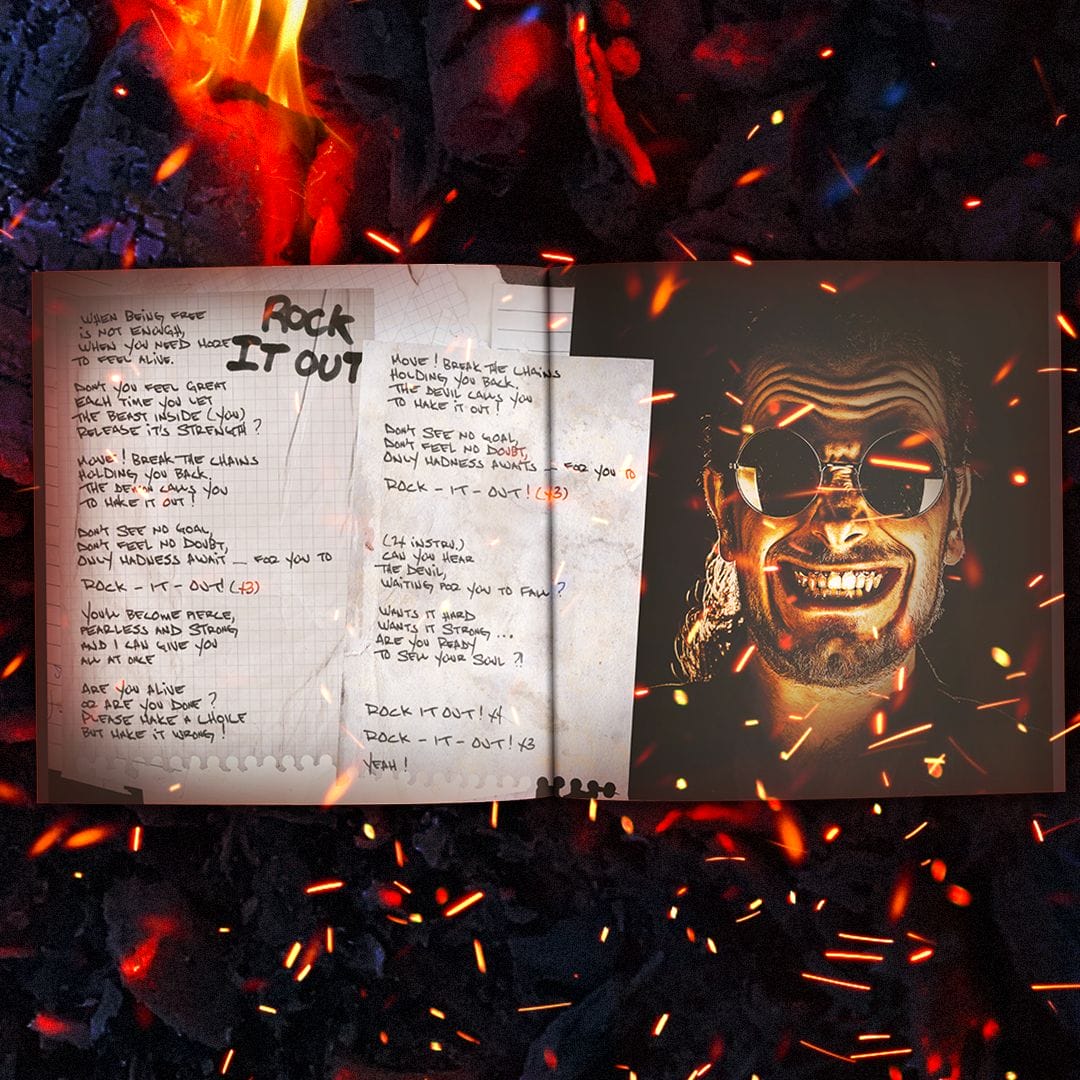 ROCK
IT OUT
WHEN BEING FREE
IS NOT ENOUGH,
WHEN YOU NEED MORE
TO FEEL ALIVE.
DON'T YOU FEEL GREAT
EACH TIME YOU LET
THE BEAST INSIDE (YOU)
RELEASE IT'S STRENGTH ?
MOVE ! BREAK THE CHAINS
HOLDING YOU BACK,
THE DEVIL CALLS YOU
TO MAKE IT OUT !
DON'T SEE NO GOAL,
DON'T FEEL NO DOUBT,
ONLY MADNESS AWAIT _ FOR YOU TO
ROCK - IT - OUT! (x3)
YOU'LL BECOME FIERCE,
FEARLESS AND STRONG
AND I CAN GIVE YOU
ALL AT ONCE
ARE YOU ALIVE
OR ARE YOU DONE ?
PLEASE MAKE A CHOICE
BUT MAKE IT WRONG !
MOVE ! BREAK THE CHAINS
HOLDING YOU BACK,
THE DEVIL CALLS YOU
TO MAKE IT OUT !
DON'T SEE NO GOAL,
DON'T FEEL NO DOUBT,
ONLY MADNESS AWAITS _ FOR YOU TO
ROCK - IT - OUT! (x3)
(24 INSTRU.)
CAN YOU HEAR
THE DEVIL,
WAITING FOR YOU TO FALL ?
WANTS IT HARD
WANTS IT STRONG ...
ARE YOU READY
TO SELL YOUR SOUL ?!
ROCK IT OUT ! x4
ROCK - IT - OUT! x3
YEAH !